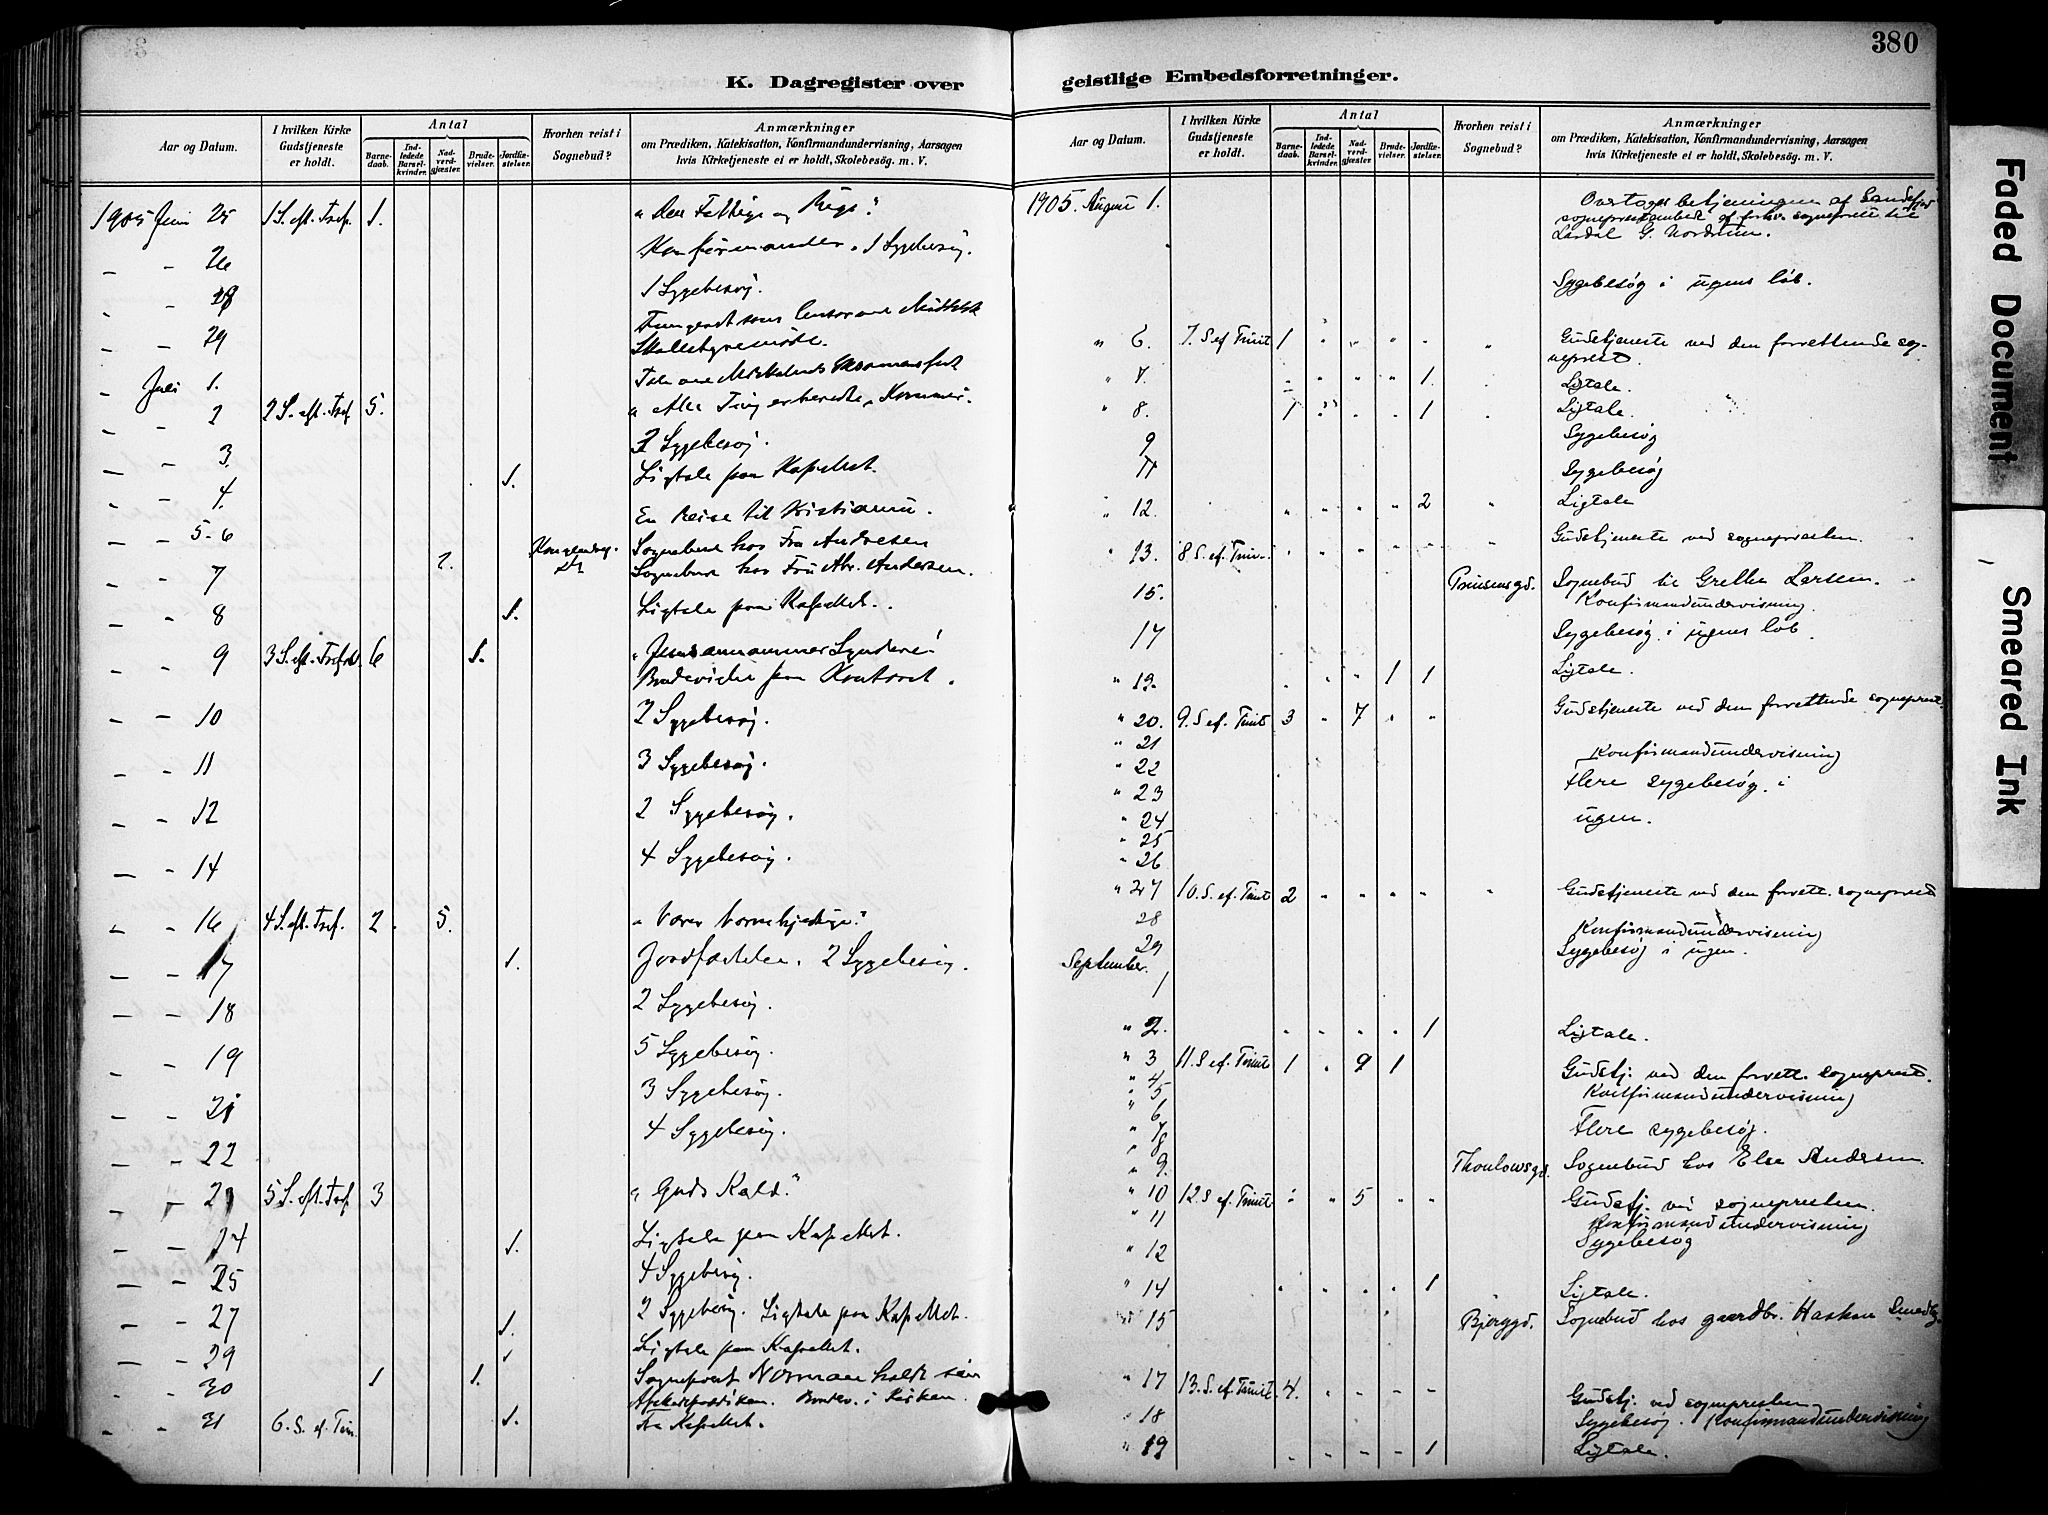 380
K. Dagregister over
Aar og Datum.
I hvilken Kirke Gudstjeneste er holdt.
Antal
Barnedaab.
Indledede Barselkvinder.
Nadverdgjæster.
Brudevielser.
Jordfæstelser.
Hvorhen reist i Sognebud?
Anmærkninger
om Prædiken, Katekisation, Konfirmandundervisning, Aarsagen
hvis Kirketjeneste ei er holdt, Skolebesög. m. V.
1905 Juni 25 1 S. eft. Tref. 1. "Den Fattige og Rige."
— — 26 Konfirmander. 1 Sygebesøg.
— — 28 1 Sygebesøg.
— — 29
Skolestyremöde.
— Juli 1.
— — 2 2 S. eft. Tref. 5. "Alle Ting er beredte, Kommer.
— — 3. 2 Sygebesøg.
— — 4. 1. Ligtale paa Kapellet.
— — 5-6 En Reise til Kristiania.
— — 7 2. Sognebud hos Fru Andresen
Sognebud hos Fru Abr. Andersen.
— — 8 1. Ligtale paa Kapellet.
— — 9 3 S. eft. Trefold. 6 1. "Jesus annammer Syndere"
Brudevielse paa Kontoret.
— — 10 2 Sygebesøg.
— — 11 3 Sygebesøg.
— — 12 2 Sygebesøg.
— — 14 4 Sygebesøg.
— — 16 4 S. eft. Tref. 2 5. "Værer barmhjertige."
— — 17 1. Jordfæstelse. 2 Sygebesøg.
— — 18 2 Sygebesøg.
— — 19 5 Sygebesøg.
— — 21 3 Sygebesøg.
— — 22 4 Sygebesøg.
— — 23 5 S. eft. Tref. 3 "Guds Kald."
— — 24 1. Ligtale paa Kapellet.
— — 25 4 Sygebesøg.
— — 27 1. 2 Sygebesøg. Ligtale paa Kapellet.
— — 29 1 Ligtale paa Kapellet.
— — 30 1 1. Sogneprest Norman holdt sin
Afskedsprædiken. Brudev. i Kirken.
— — 31 6. S. ef. Trin. 1. Fra Kapellet.
geistlige Embedsforretninger.
Aar og Datum.
I hvilken Kirke Gudstjeneste er holdt.
Antal
Barnedaab.
Indledede Barselkvinder.
Nadverdgjæster.
Brudevielser.
Jordfæstelser.
Hvorhen reist i Sognebud?
Anmærkninger
om Prædiken, Katekisation, Konfirmandundervisning, Aarsagen
hvis Kirketjeneste ei er holdt, Skolebesög. m. V.
1905. August 1. Overtoges betjeningen af Sandefjord
sogneprestembede af forhv. sogneprest til
Lardal G. Nordrum.
Sygebesøg i ugens løb.
" 6. 7. S ef Trinit 1 Gudstjeneste ved den forrettende sog-
neprest.
" 7. 1. Ligtale.
" 8. 1 1 Ligtale.
9 Sygebesøg
11 Sygebesøg
" 12. 2 Ligtale
" 13. 8 S. ef. Trin. Gudstjeneste ved sognepresten.
15. Prinsensgd. Sognebud til Grethe Larsen.
Konfirmandundervisning.
17 Sygebesøg i ugens løb.
" 19. 1 1 Ligtale.
" 20. 9. S ef. Trinit 3 7 Gudstjeneste ved den forrettende sogneprest.
" 21
" 22 Konfirmandundervisning
" 23 flere sygebesøg i
" 24 ugen.
" 25
" 26
" 27 10. S. ef. Trinit 2 Gudstjeneste ved den forrett. sogneprest
28 Konfirmandundervisning
29 Sygebesøg i ugen.
September.
1
" 2. 1 Ligtale.
" 3 11. S ef. Trinit 1 9 1 Gudstj. ved den forrett. sogneprest.
" 4
" 5 Konfirmandundervisning
" 6
" 7 Flere sygebesøg.
" 8
" 9. Thoulowsgd. Sognebud hos Else Andersen.
" 10 12 S ef. Trinit 5 Gudstj. ved sognepresten.
" 11 Konfirmandundervisning
" 12 Sygebesøg
" 14 1 Ligtale.
" 15 Bjerggd. Sognebud hos gaardbr. Haakon
" 17 13. S. ef. Trinit. 4. Gudstj. ved sognepresten
" 18 Sygebesøg. Konfirmandundervisning
" 19 1 Ligtale.
Faded Document
Smeared Ink